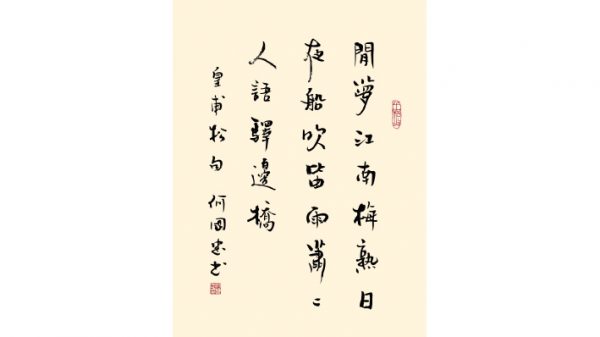 閒夢江南梅熟日
夜船吹笛雨瀟〻
人語驛邊橋
皇甫松句 何國忠書